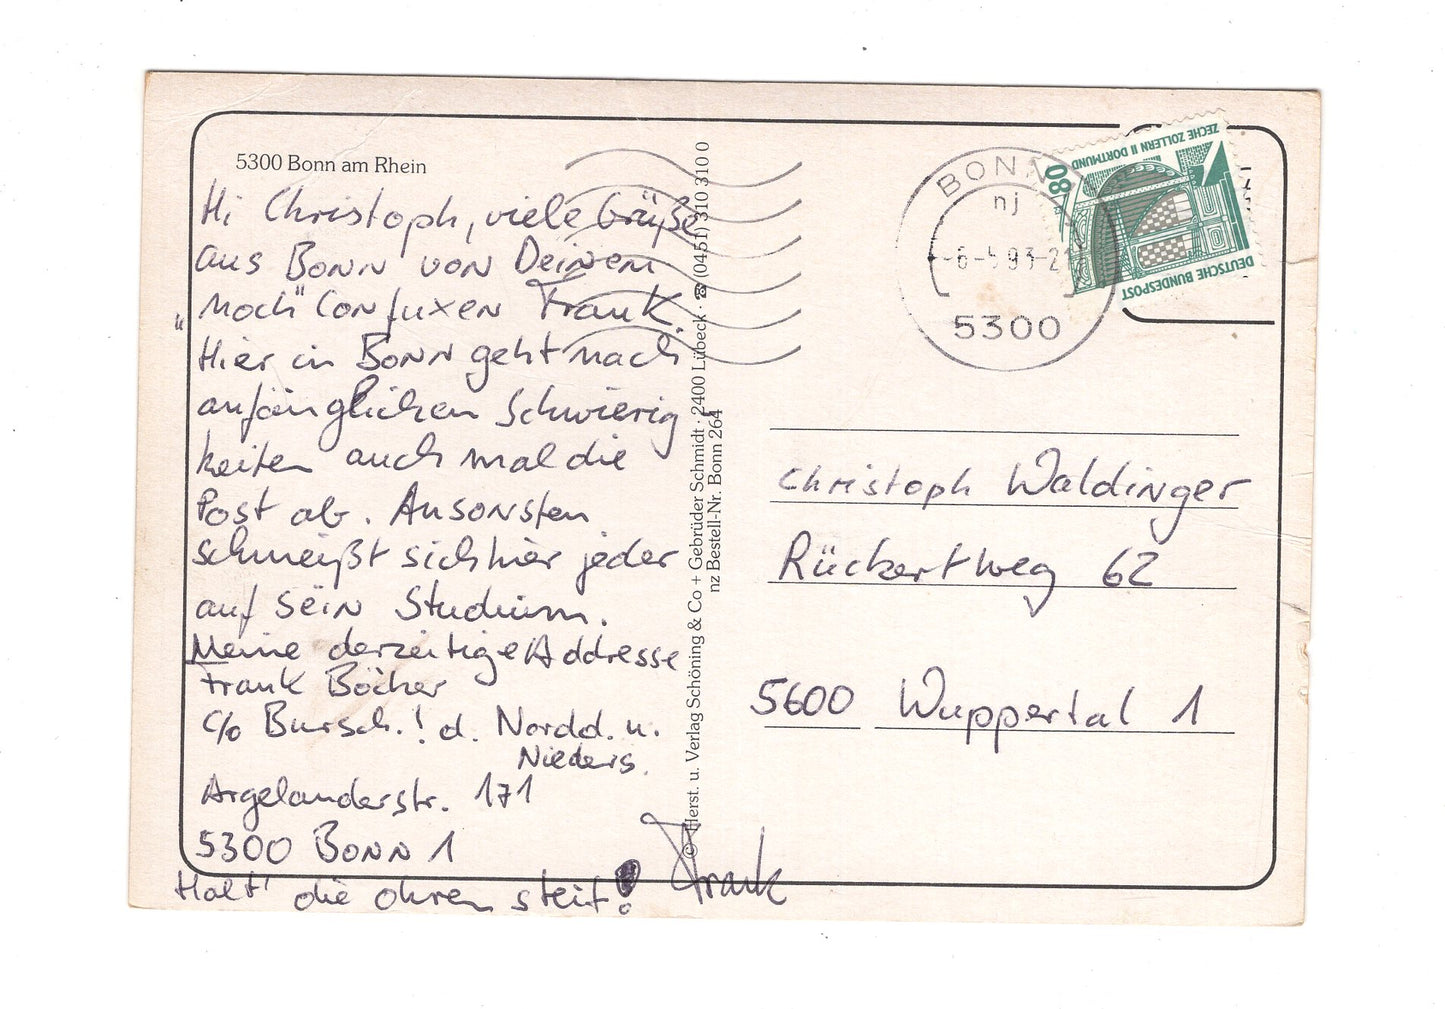 5300 Bonn am Rhein
Hi Christoph, viele Grüße
aus Bonn von Deinem
„noch" confuxen Frank.
Hier in Bonn geht nach
anfänglichen Schwierig
keiten auch mal die
Post ab. Ansonsten
schmeißt sich hier jeder
auf sein Studium.
Meine derzeitige Addresse
Frank Böcher
c/o Bursch.! d. Nordd. u.
Nieders.
Argelanderstr. 171
5300 Bonn 1
Halt' die Ohren steif! Frank
© Herst. u. Verlag Schöning & Co + Gebrüder Schmidt · 2400 Lübeck · ☎ (0451) 310 310 0
nz Bestell-Nr. Bonn 264
BONN
nj
-6-5 93-21
5300
80
ZECHE ZOLLERN II DORTMUND
DEUTSCHE BUNDESPOST
Christoph Waldinger
Rückertweg 62
5600 Wuppertal 1